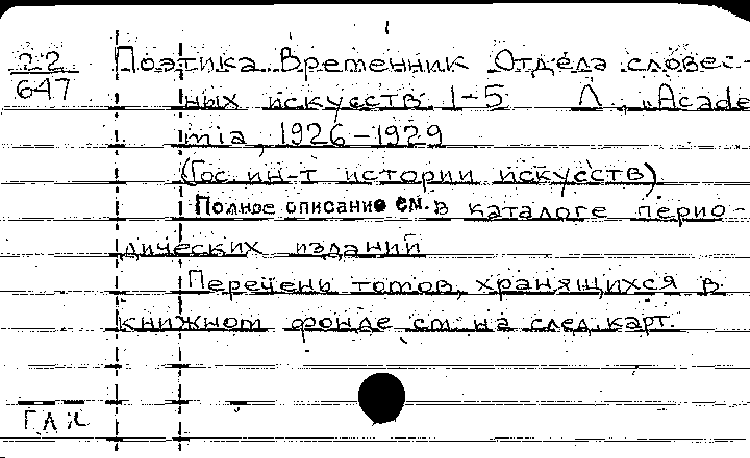 22
647
Поэтика. Временник Отдела словес-
ных искусств. 1-5 Л., „Acade
mia, 1926-1929
(Гос. ин-т истории искусств)
Полное описание см. в каталоге перио-
дических изданий
Перечень томов, хранящихся в
книжном фонде см. на след. карт.